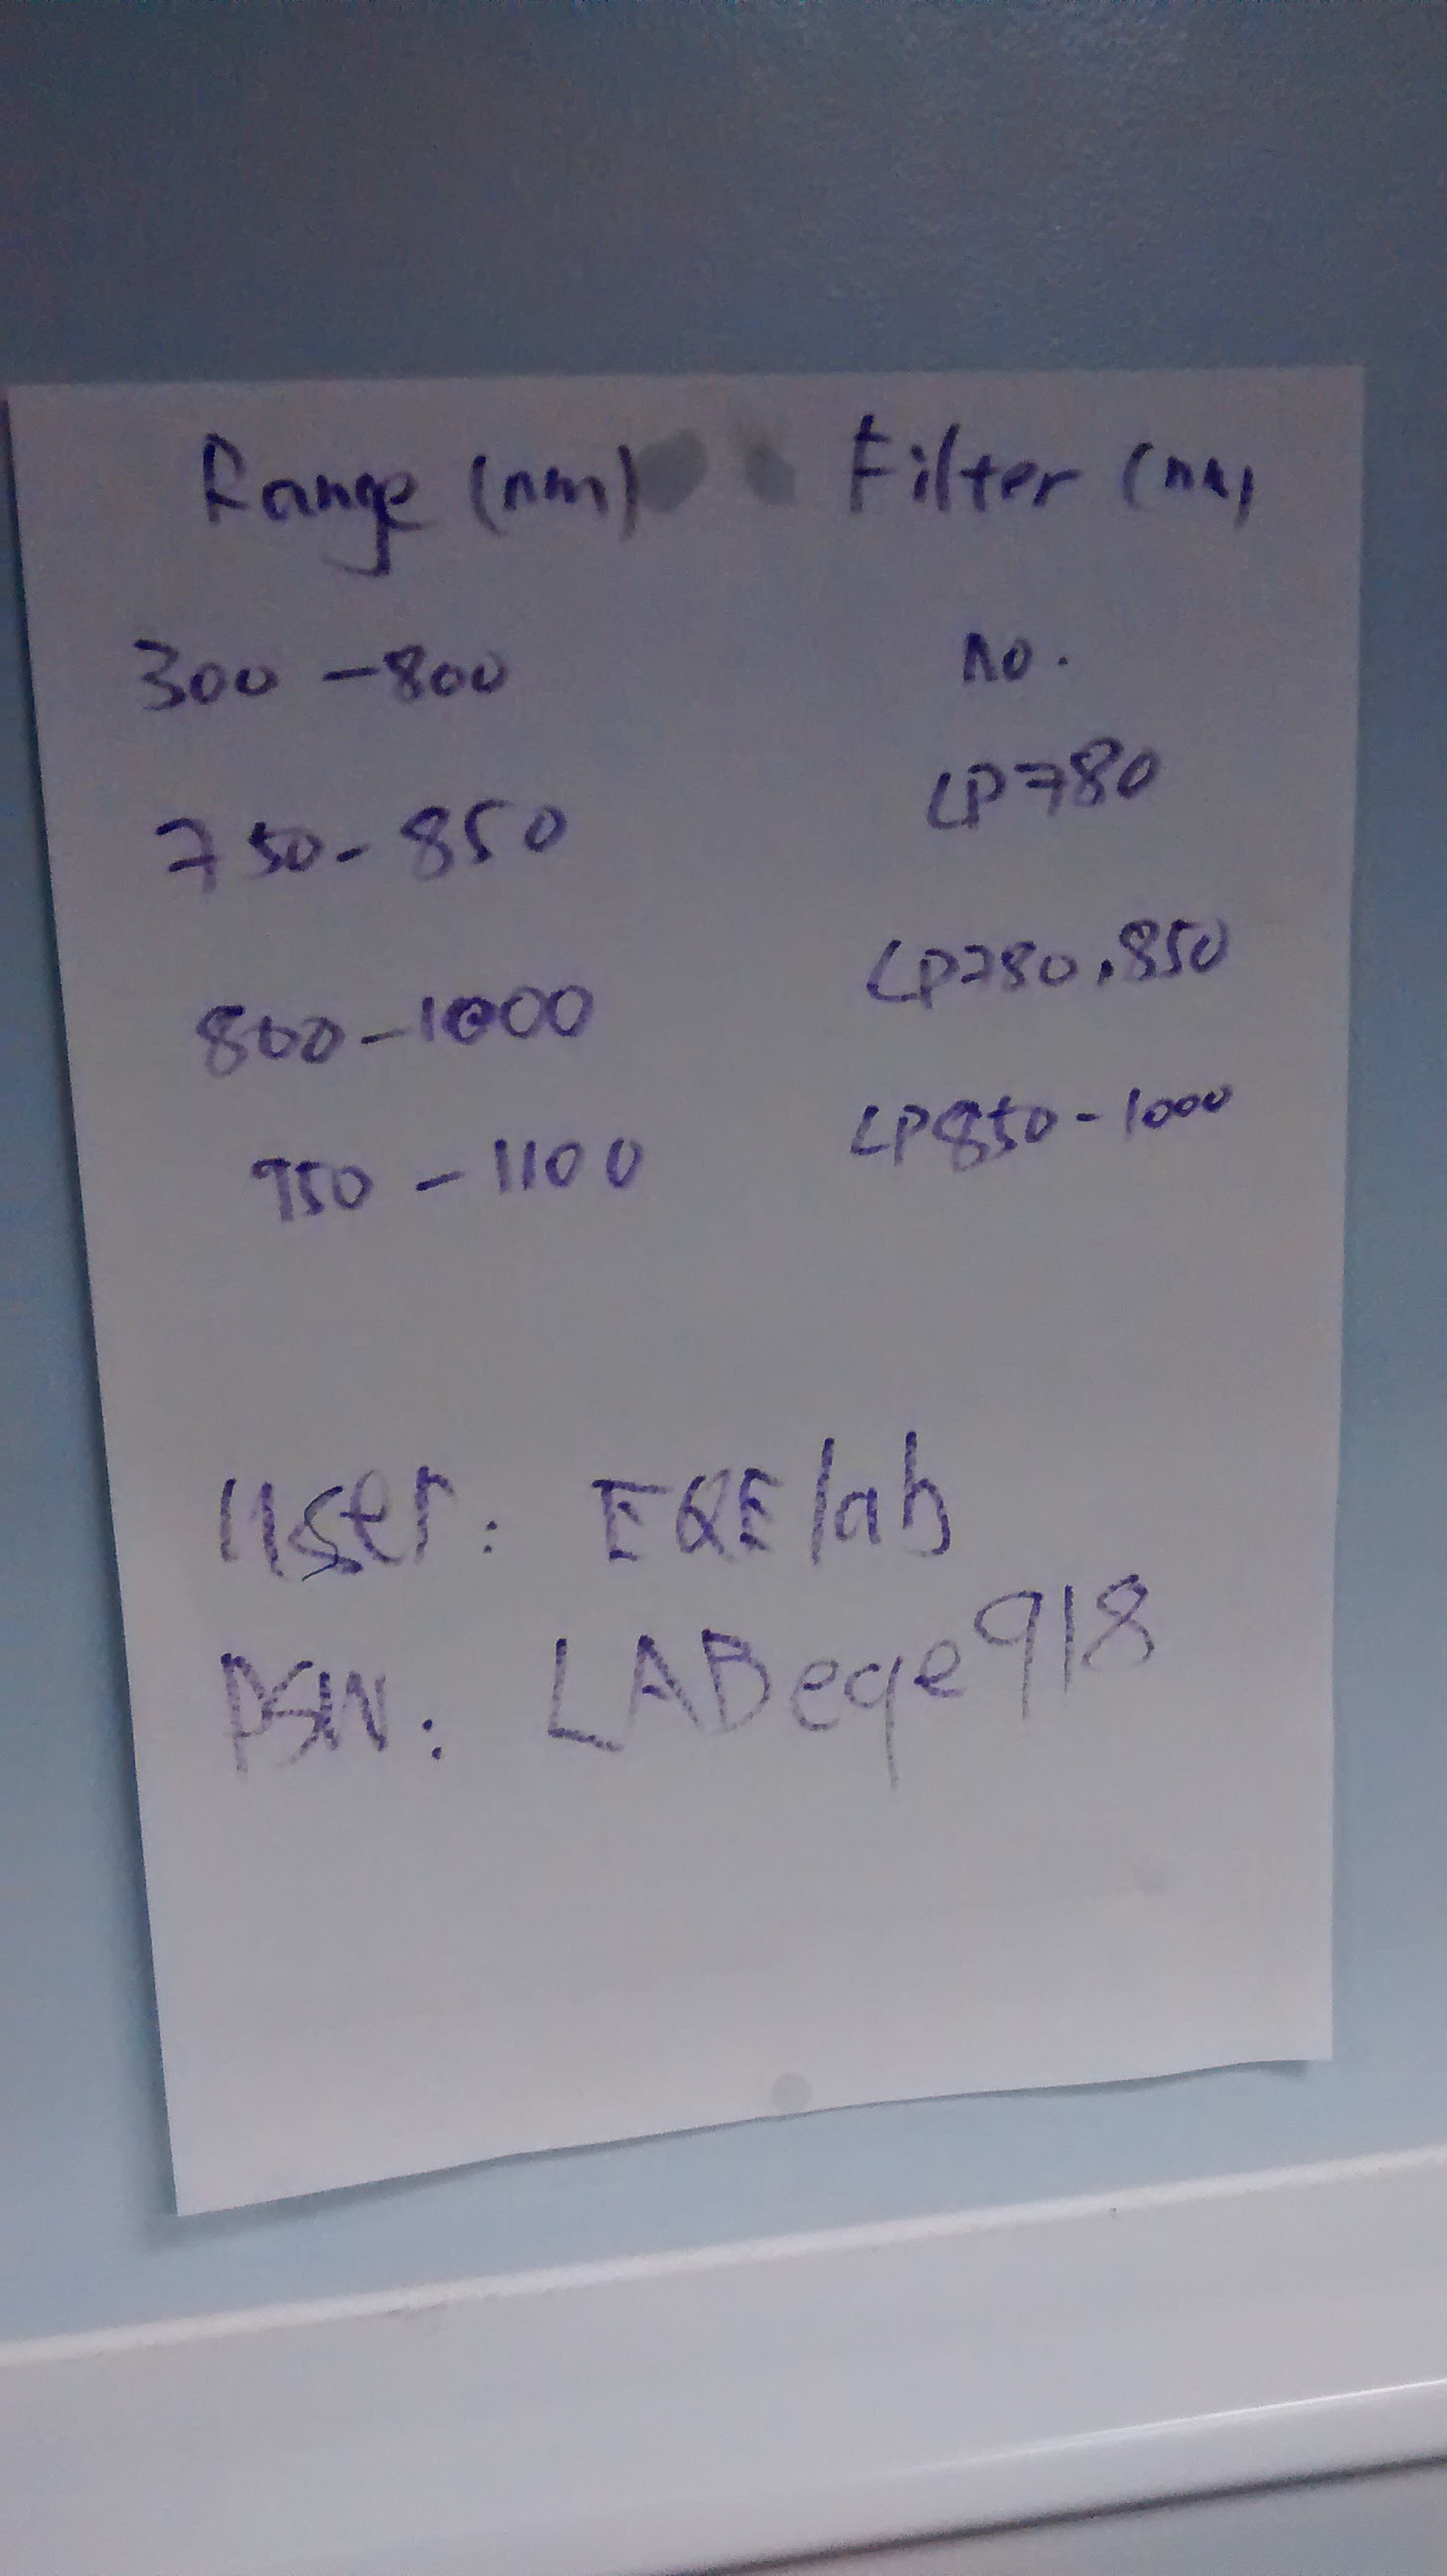 Range (nm) Filter (nm)
300 - 800 no.
750 - 850 LP780
800 - 1000 LP780, 850
950 - 1100 LP850 - 1000
User: EQE lab
PSW: LABeqe918